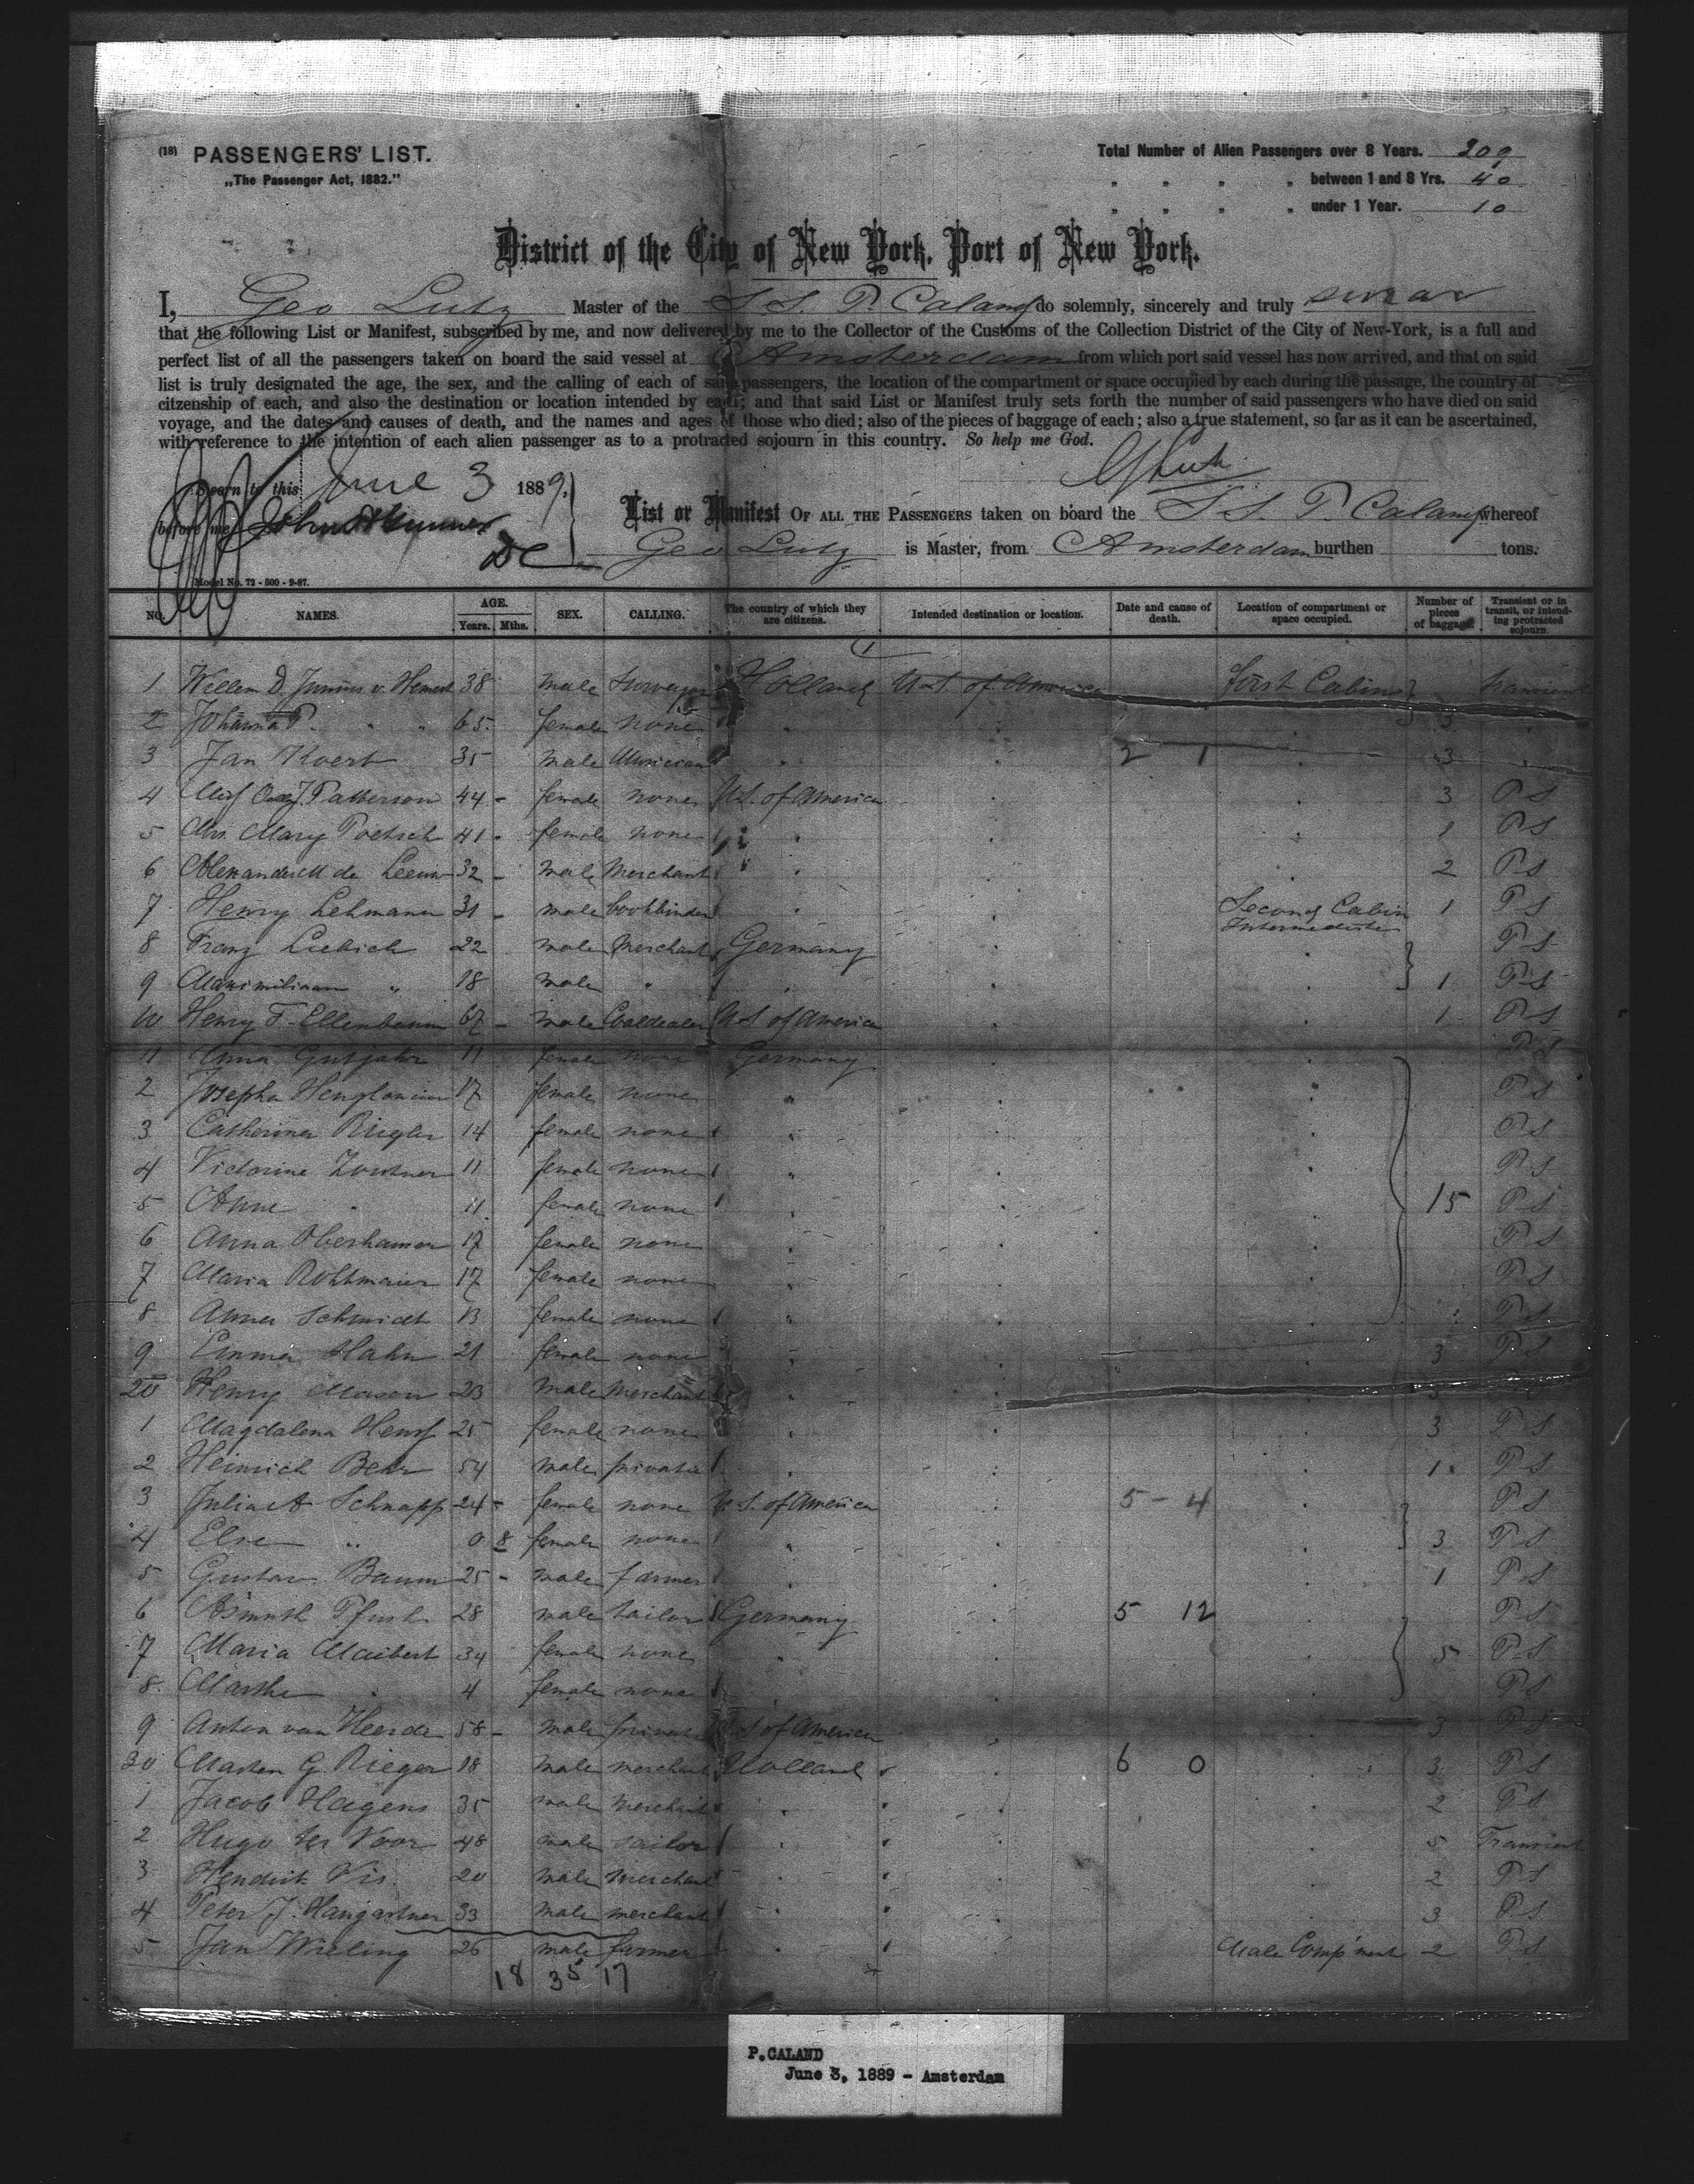 (18) PASSENGERS' LIST.
„The Passenger Act, 1882."
Total Number of Alien Passengers over 8 Years. 209
" " " " between 1 and 8 Yrs. 40
" " " " under 1 Year. 10
District of the City of New York, Port of New York.
I, Geo Lutz Master of the S.S. P. Caland do solemnly, sincerely and truly swear
that the following List or Manifest, subscribed by me, and now delivered by me to the Collector of the Customs of the Collection District of the City of New-York, is a full and
perfect list of all the passengers taken on board the said vessel at Amsterdam from which port said vessel has now arrived, and that on said
list is truly designated the age, the sex, and the calling of each of said passengers, the location of the compartment or space occupied by each during the passage, the country of
citzenship of each, and also the destination or location intended by each; and that said List or Manifest truly sets forth the number of said passengers who have died on said
voyage, and the dates and causes of death, and the names and ages of those who died; also of the pieces of baggage of each; also a true statement, so far as it can be ascertained,
with reference to the intention of each alien passenger as to a protracted sojourn in this country. So help me God.
Sworn to this June 3 1889.
before me John
DC
List or Manifest OF ALL THE PASSENGERS taken on board the S.S. P. Caland whereof
Geo Lutz is Master, from Amsterdam burthen tons.
Model No. 72 - 500 - 9-87.
NO. NAMES. AGE. Years. Mths. SEX. CALLING. The country of which they are citizens. Intended destination or location. Date and cause of death. Location of compartment or space occupied. Number of pieces of baggage. Transient or in transit, or intending protracted sojourn.
1 Willem D. Junius v. Hemert 38 male Surveyor Holland U.S. of America First Cabin transient
2 Johanna P. " " 65 female none " 3 "
3 Jan Koert 35 male Musician " 2 1 3 "
4 44 - female none U.S. of America 3 P S
5 Mrs. Mary Poetsch 41 - female none " 1 P S
6 Alexander M de Leeuw 32 - male Merchant " 2 P S
7 Henry Lehmann 31 - male bookbinder " Second Cabin Intermediate 1 P S
8 Franz Liebich 22 male Merchant Germany P S
9 Maximiliaan " 18 male " " 1 P S
10 Henry F. Ellenbaum 67 - male Coaldealer U.S of America 1 P S
11 Anna Gutjahr 11 female none Germany P S
2 Josepha 17 female none " P S
3 Catherina Riegler 14 female none " P S
4 Victorine 11 female none " P S
5 Anne " 11 female none " 15 P S
6 Anna Oberhauser 17 female none " P S
7 Maria 17 female none " P S
8 Anna Schmidt 13 female none " P S
9 Emma Hahn 21 female none " 3 P S
20 Henry Mason 23 male Merchant " 3
1 Magdalena 25 female none " 3 P S
2 Heinrich Behr 54 male private " 1 P S
3 Julia A Schnapp 24 - female none U.S. of America 5 - 4 P S
4 Else " 0 8 female none " 3 P S
5 Gustav Baum 25 - male farmer " 1 P S
6 28 male tailor Germany 5 12 P S
7 Maria Maibert 34 female none " 5 P S
8 Marthe " 4 female none " P S
9 Anton van Heerde 58 - male private U S of America 3 P S
30 Marten G. Rieger 18 male merchant Holland 6 0 3 P S
1 Jacob Hagens 35 male merchant " 2 P S
2 Hugo ter Voor 48 male sailor " 5 Transient
3 Hendrik Vis 20 male merchant " 2 P S
4 Peter J. Hangartner 33 male merchant " 3 P S
5 Jan Wieling 26 male farmer " Male Comp'ment 2 P S
18 35 17
P.CALAND
June 3, 1889 - Amsterdam